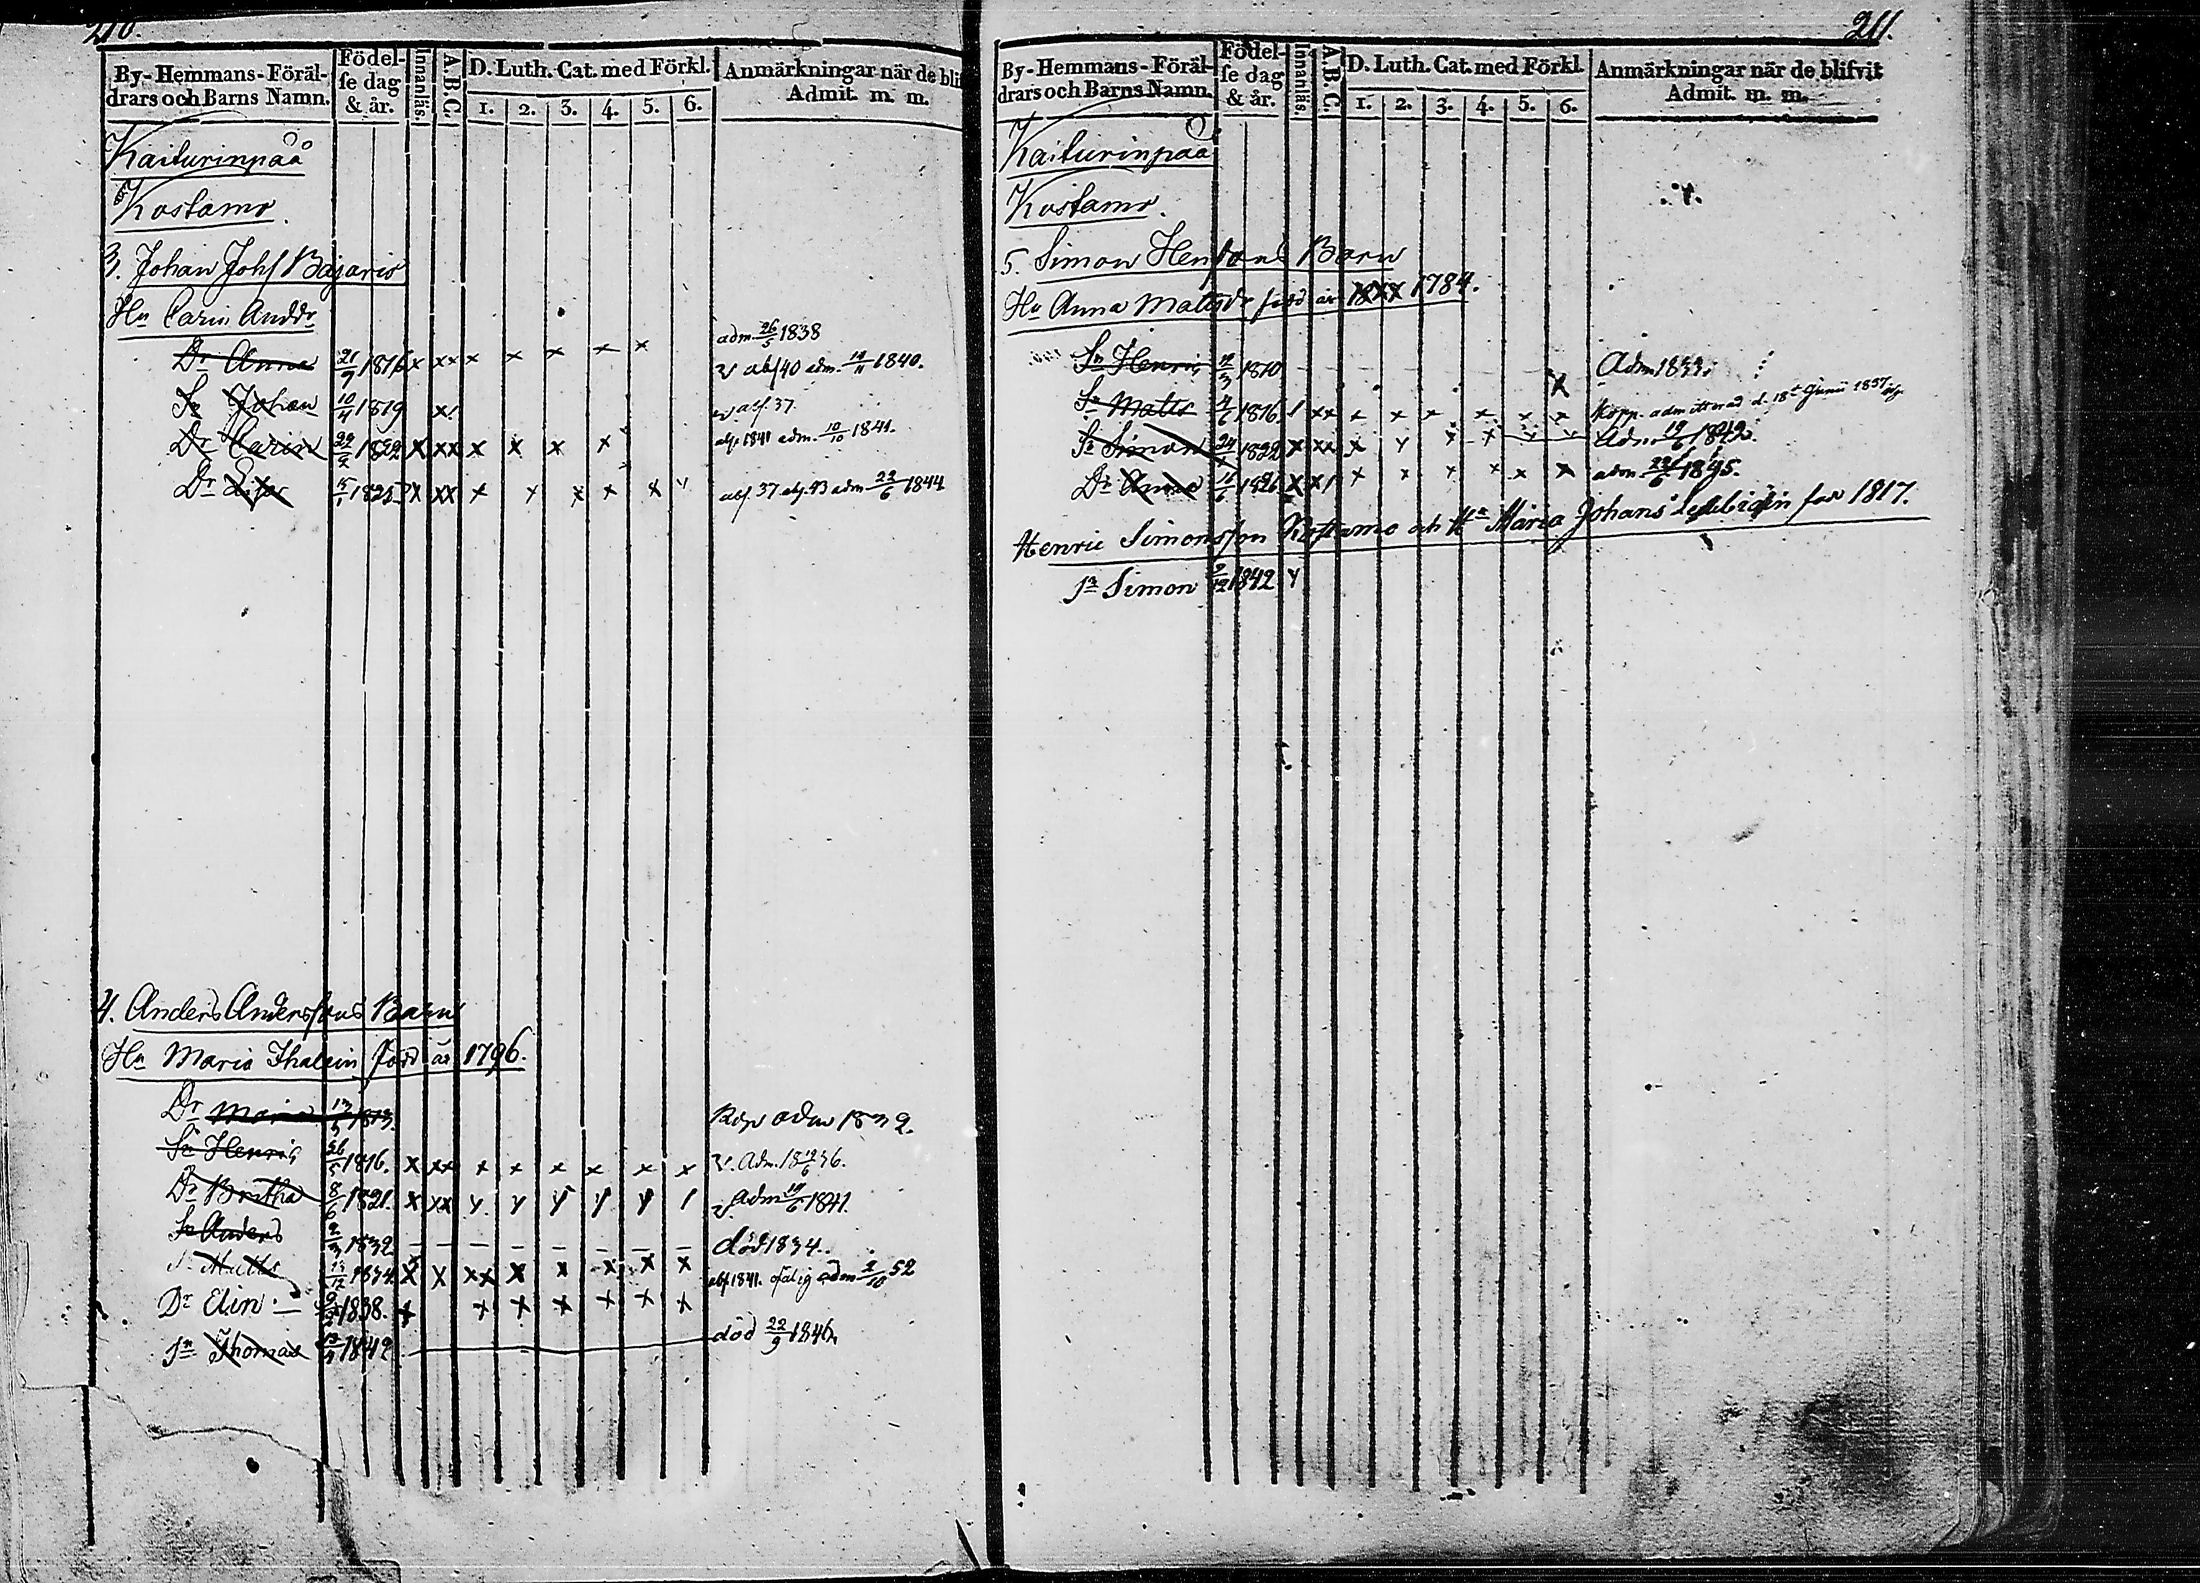 210.
By-Hemmans-Föräl-
drars och Barns Namn.
Födel-
se dag
& år.
Innanläs.
A.B.C.
D. Luth. Cat. med Förkl.
1. 2. 3. 4. 5. 6.
Anmärkningar när de blif
Admit. m. m.
Kaiturinpää
Kostamo.
3. Johan Johs Bajaris
Hu Carin Anddr
adm. 26/5 1838
Dr Anna 21/9 1816 x xx x x x x x v abs 40 adm. 11 1840.
Sn Johan 10/4 1819 x! v abs. 37.
Dr Carin 1822 x xx x x x x abs 1841 adm. 10/10 1841.
Dr 15/1 1825 x xx x x x x x abs. 37 abs. 43 adm. 22/6 1844
4. Anders Anderssons Barn
Hu Maria Thalein född år 1796.
Dr Maria 1813. adm 1832.
Sn Henric 26/5 1816. x xx x x x x x x v. Adm. 18 19/6 36.
Dr Britha 8/6 1821. x xx y y y y y / v adm 19/6 1841.
Sn Anders 1832 – – – – – – – – död 1834.
Sn Matts 13/12 1834 x x xx x x x x x abs 1841. adm 2/10 52
Dr Elin 1838. x x x x x x x
Sn Thomas 1842 död 22/9 1842
211.
By-Hemmans-Föräl-
drars och Barns Namn.
Födel-
se dag
& år.
Innanläs.
A.B.C.
D. Luth. Cat. med Förkl.
1. 2. 3. 4. 5. 6.
Anmärkningar när de blifvit
Admit. m. m.
Kaiturinpää
Kostamo.
5. Simon Hensons Barn
Hu Anna Matsdr född år 1784.
Sn Henric 1810 Adm 1833.
Sn Matts 1816 / xx x x x x x x Kopp. admitterad d. 18t Junii 1837
Sn Simon 1822 x xx x y x x y y Adm 19/6 1842.
Dr Anna 16/6 1826 x x/ x x x x x x adm 1845.
Henric Simonsson Kostamo och Hu Maria Johans född 1817.
Sn Simon 9/12 1842 y